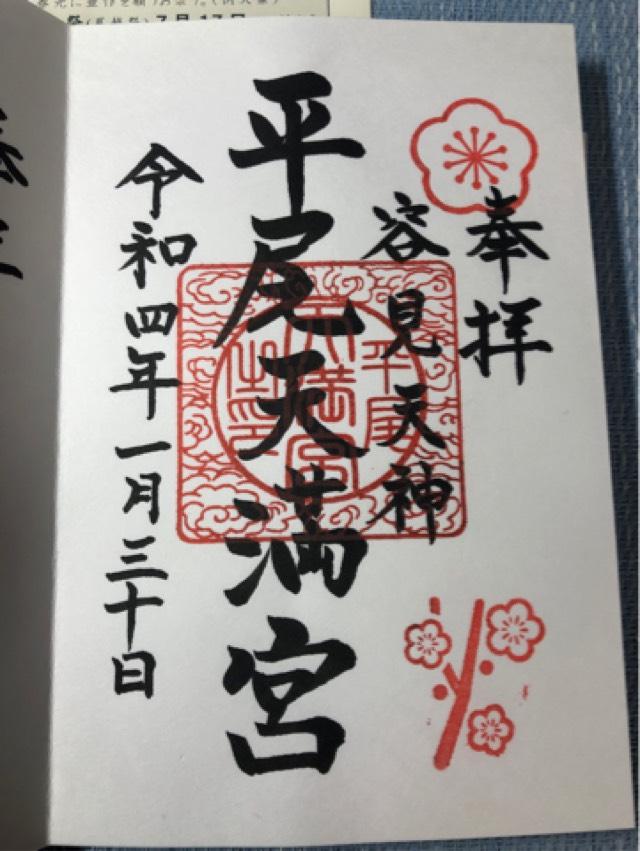 奉拝
容見天神
平尾天満宮
平尾
天満宮
令和四年一月三十日
7月17日